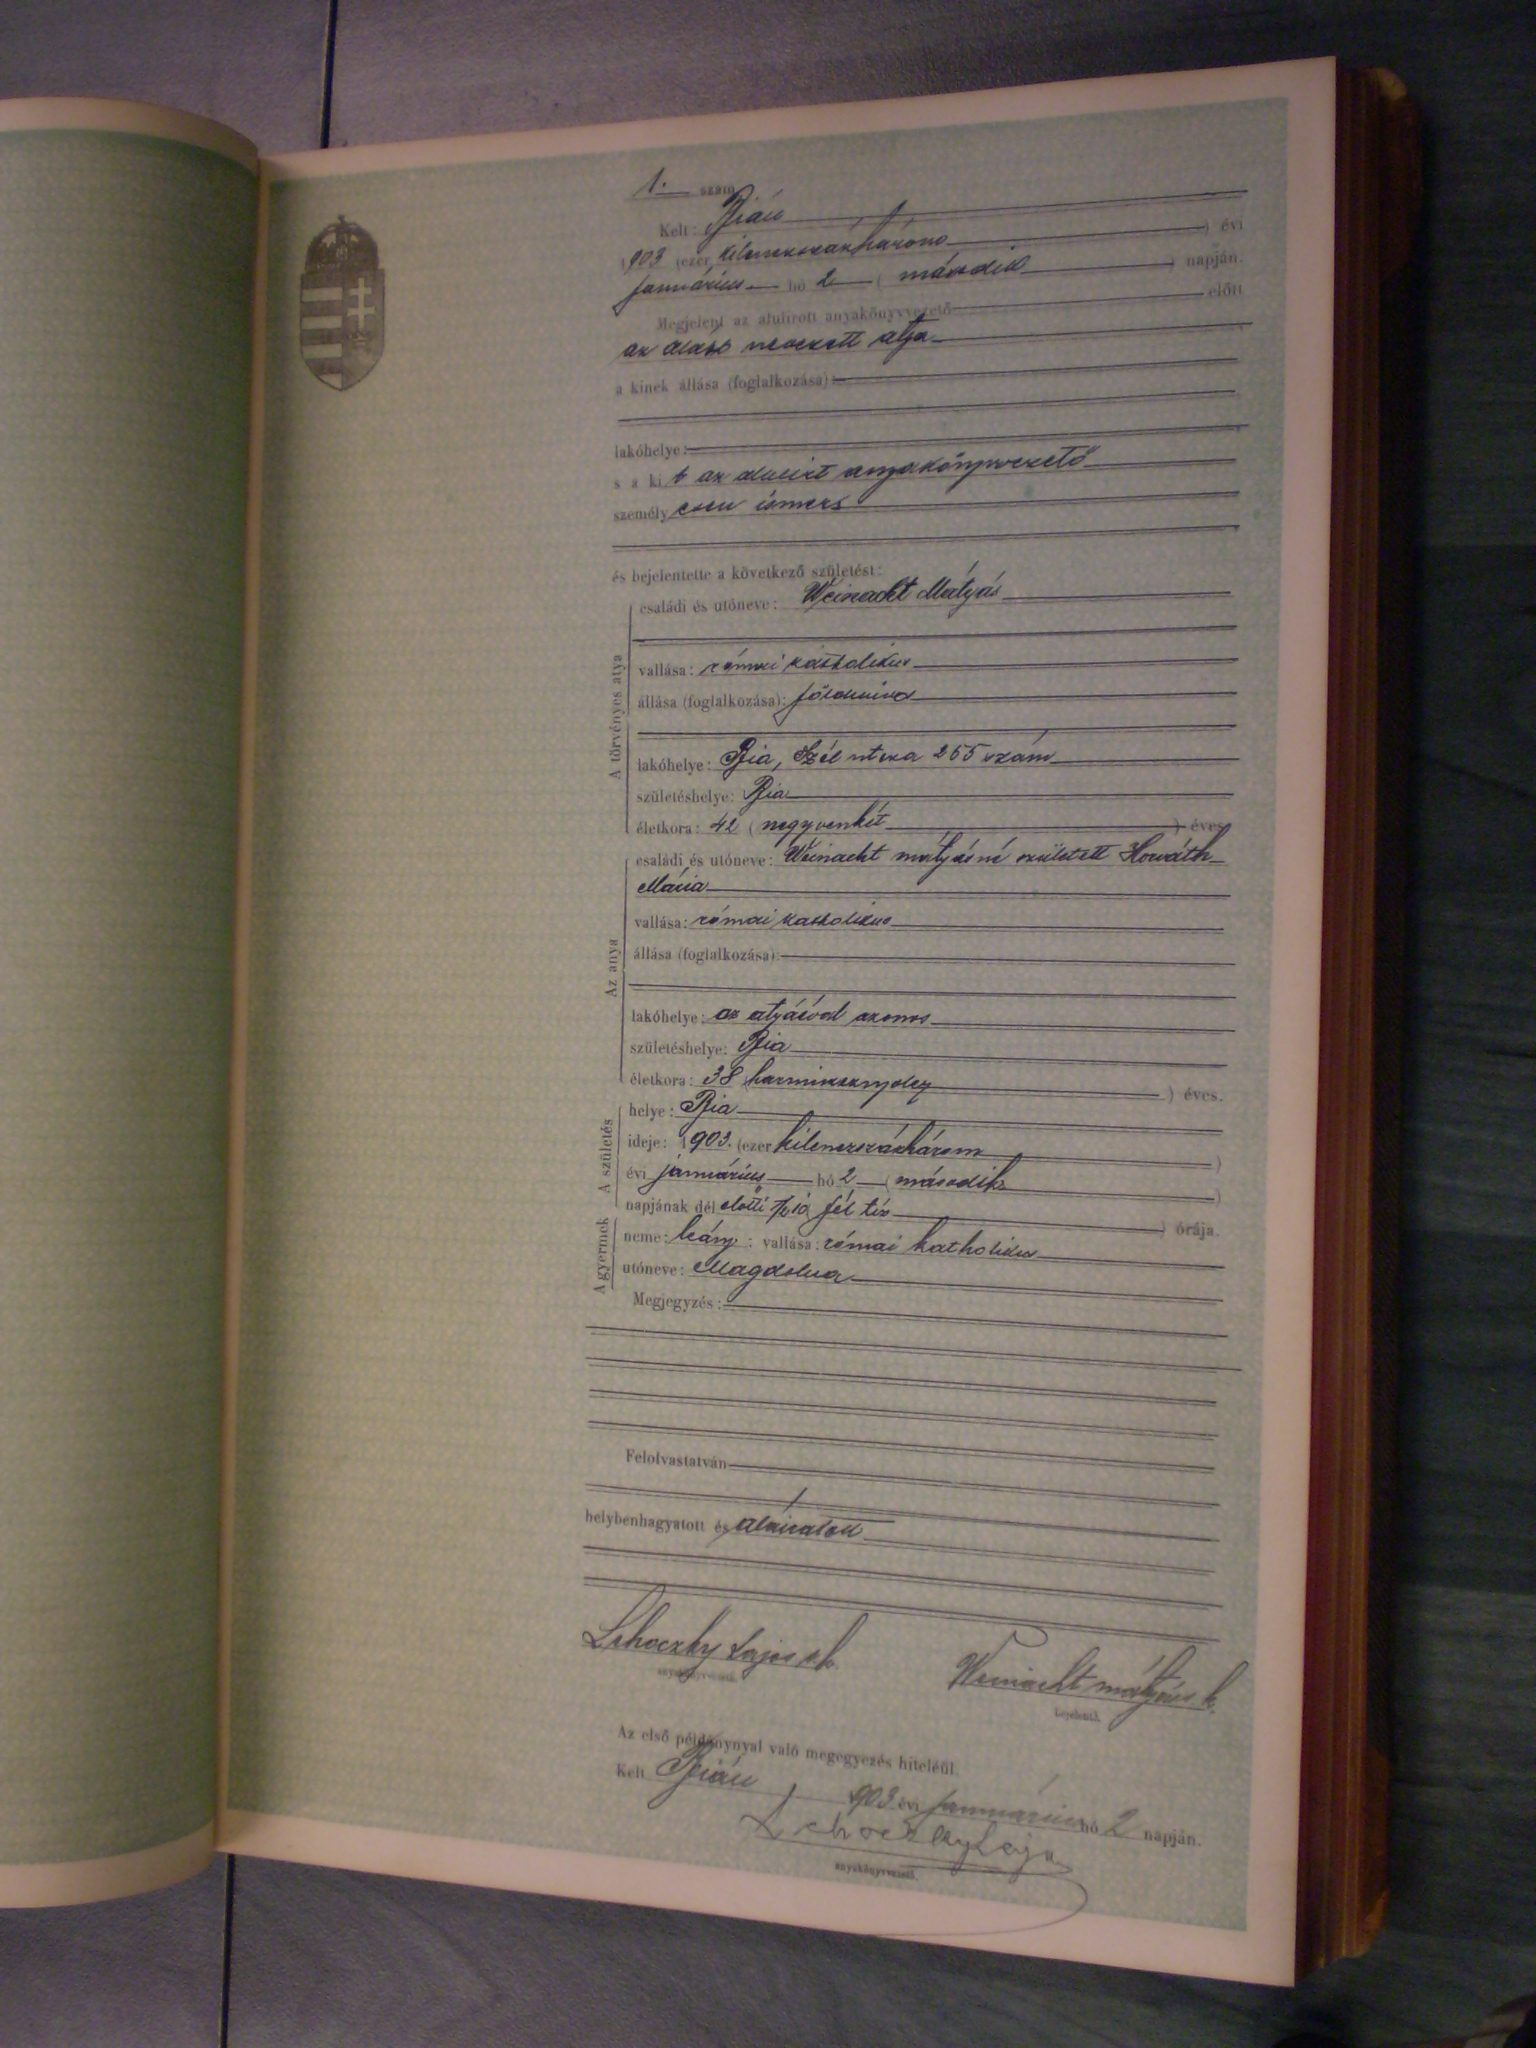 1. szám
Kelt: Bián
1903 (ezer kilenczszázhárom) évi
január​ius hó 2 (második) napján.
Megjelent az alulirott anyakönyvvezető előtt
az alább nevezett atya
a kinek állása (foglalkozása):
lakóhelye:
s a kit az alulirt anyakönyvvezető
személyesen ismers
és bejelentette a következő születést:
A törvényes atya
családi és utóneve: Weinacht Mátyás
vallása: római katholikus
állása (foglalkozása): földmives
lakóhelye: Bia, Szél utcza 255 szám
születéshelye: Bia
életkora: 42 (negyvenkét) éves
Az anya
családi és utóneve: Weinacht Mátyásné született Horváth
Mária
vallása: római katholikus
állása (foglalkozása):
lakóhelye: az atyáéval azonos
születéshelye: Bia
életkora: 38 harmincznyolcz) éves.
A születés
helye: Bia
ideje: 1903. (ezer kilenczszázhárom)
évi január​ius hó 2 (második)
napjának dél előtti ½10 fél tiz) órája.
A gyermek
neme: leány: vallása: római katholikus
utóneve: Magdolna
Megjegyzés:
Felolvastatván
helybenhagyatott és aláiratott
Lehoczky Lajos sk.
anyakönyvvezető.
Weinacht Mátyás s. k.
bejelentő.
Az első példánynyal való megegyezés hiteléül.
Kelt Bián, 1903 évi január​ius hó 2 napján.
Lehoczky Lajos
anyakönyvvezető.